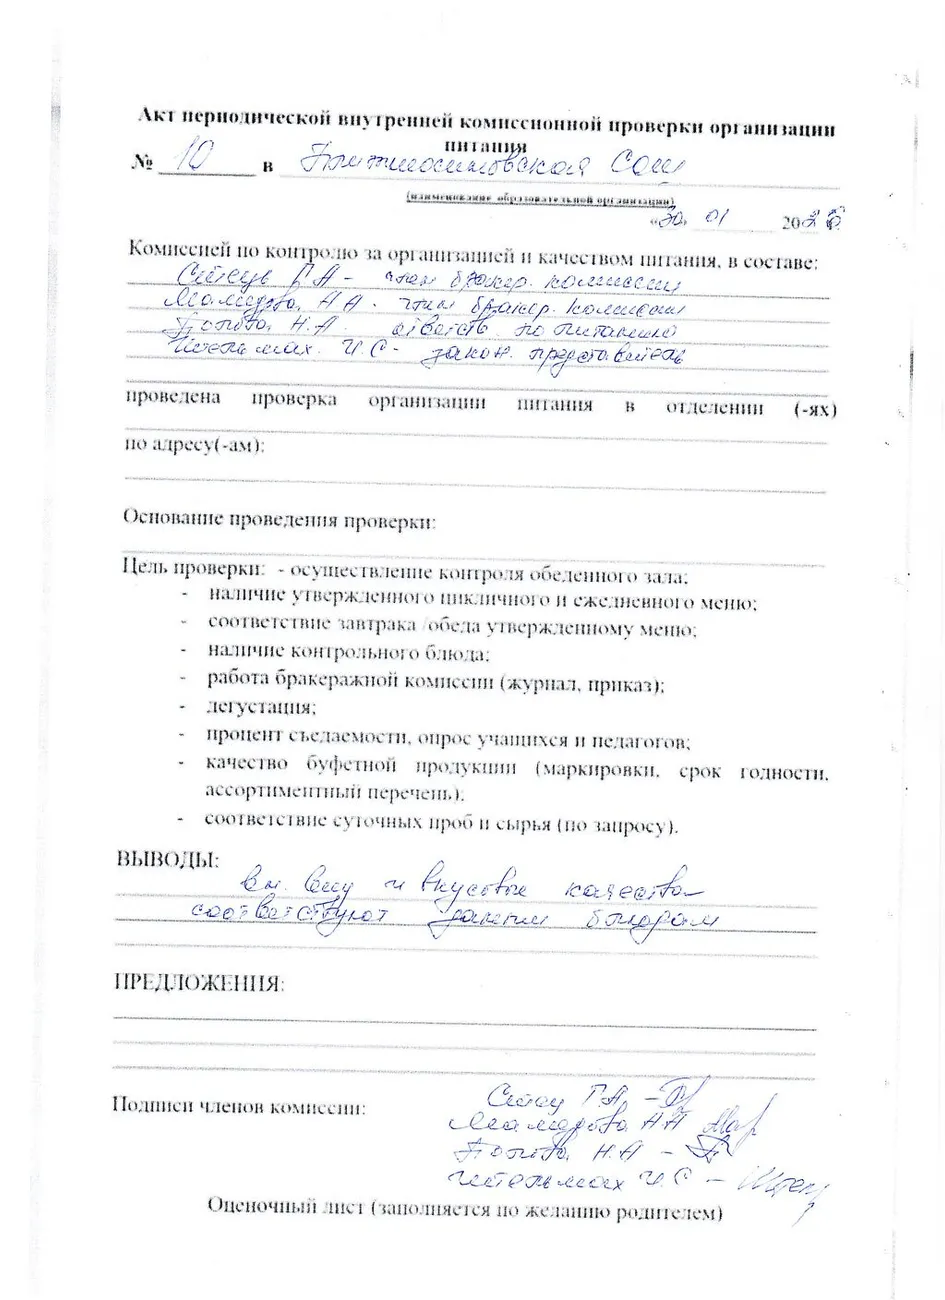 Акт периодической внутренней комиссионной проверки организации
питания
№ 10 в СОШ
(наименование образовательной организации)
«30» 01 20
Комиссией по контролю за организацией и качеством питания, в составе:
Г.А - член бракер. комиссии
Мамедова Н А - член бракер. комиссии
Попова Н.А. ответств. по питанию
Штельмах. И.С - закон. представитель
проведена проверка организации питания в отделении (-ях)
по адресу(-ам):
Основание проведения проверки:
Цель проверки: - осуществление контроля обеденного зала;
- наличие утвержденного цикличного и ежедневного меню;
- соответствие завтрака /обеда утвержденному меню;
- наличие контрольного блюда;
- работа бракеражной комиссии (журнал, приказ);
- дегустация;
- процент съедаемости, опрос учащихся и педагогов;
- качество буфетной продукции (маркировки, срок годности,
ассортиментный перечень);
- соответствие суточных проб и сырья (по запросу).
ВЫВОДЫ:
вн. виду и вкусовые качества
соответствуют данным блюдам
ПРЕДЛОЖЕНИЯ:
Подписи членов комиссии:
Г.А. -
Мамедова Н А
Попова Н.А -
Штельмах И.С -
Оценочный лист (заполняется по желанию родителем)